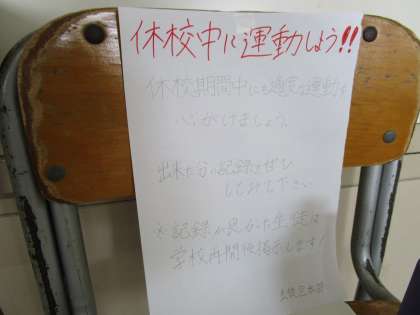 休校中に運動しよう!!
休校期間中にも適度な運動を
心がけましょう。
出来た分の記録をぜひ
してみて下さい
※記録が良かった生徒は
学校再開後掲示します!